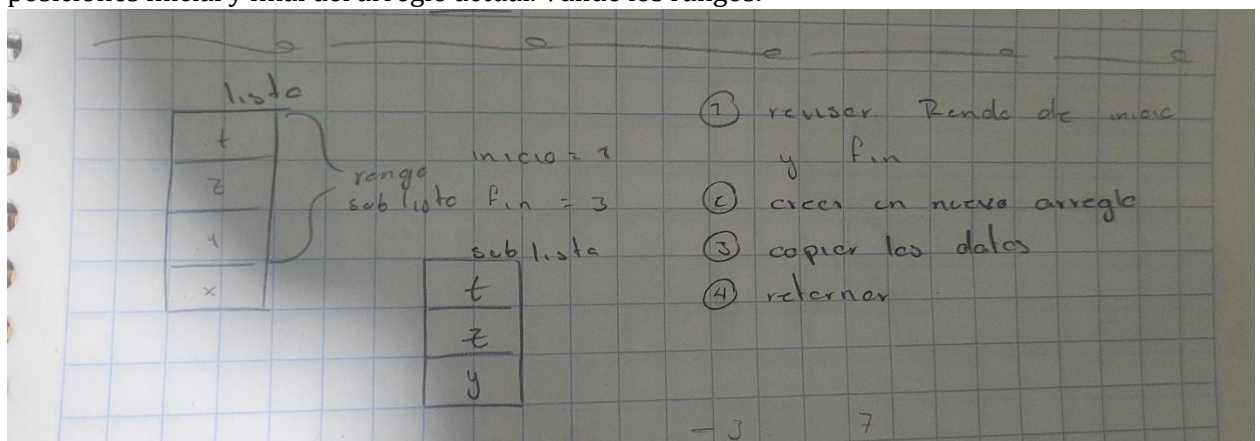 posiciones inicial y final del arreglo actual. Valide los rangos.
lista
t
z
y
x
rango
sub lista
inicio = 1
fin = 3
sub lista
t
z
y
① revisar de inicio
y fin
② crear un nuevo arreglo
③ copiar los datos
④ retornar
- 3 7